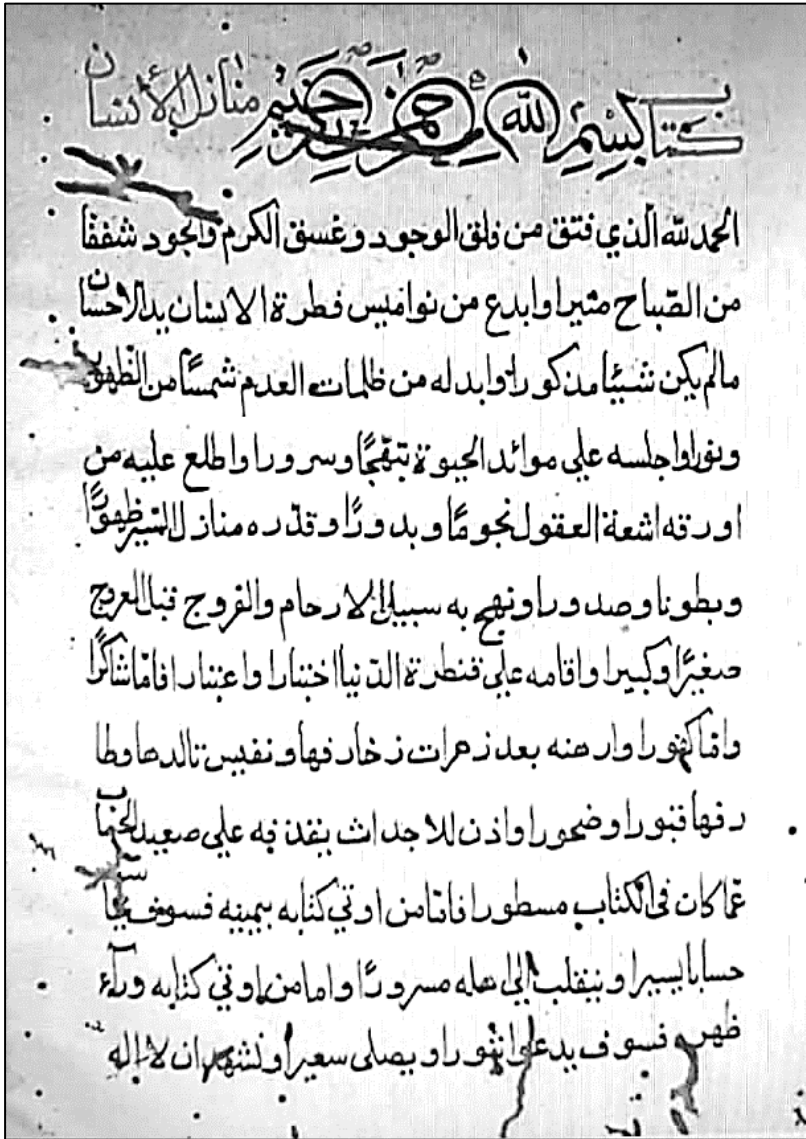 كتاب بسم الله الرحمن الرحيم منازل الأنسان
الحمد لله الذي فتق من فلق الوجود وغسق الكرم والجود شفقا
من الصّباح منيرا وابدع من نواميس فطرة الانسان يد الاحسان
مالم يكن شيئا مذكورا وابدله من ظلمات العدم شمسًا من الظهور
ونورا واجلسه علي موائد الحيوة وسرورا واطلع عليه من
اورقه اشعة العقول نجومًا وبدورًا وقدّره منازل السّير ظهورًا
وبطونا وصدورا ونهج به سبيل الارحام والفروج قبل العروج
صغيرًا وكبيرا واقامه علي قنطرة الدّنيا اختبارا واعتبارا فامّا شاكرًا
وامّا كفورا وارهنه بعد زهرات زخارفها ونفيس تالدها وطا
رفها قبورا واذن للاجداث به علي صعيد
عمّا كان في الكتاب مسطورا فامّا من اوتي كتابه بيمينه فسوف يحاسب
حسابا يسيرا وينقلب الي اهله مسرورًا واما من اوتي كتابه ورآء
ظهره فسوف يدعوا ثبورا ويصلى سعيرا ونشهد ان لا اله